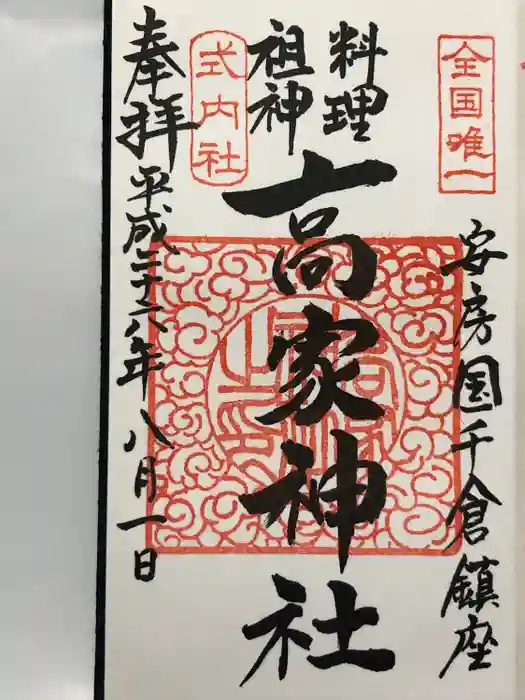 全国唯一
安房国千倉鎮座
料理
祖神
高家神社
式内社
奉拝
平成二十八年八月一日